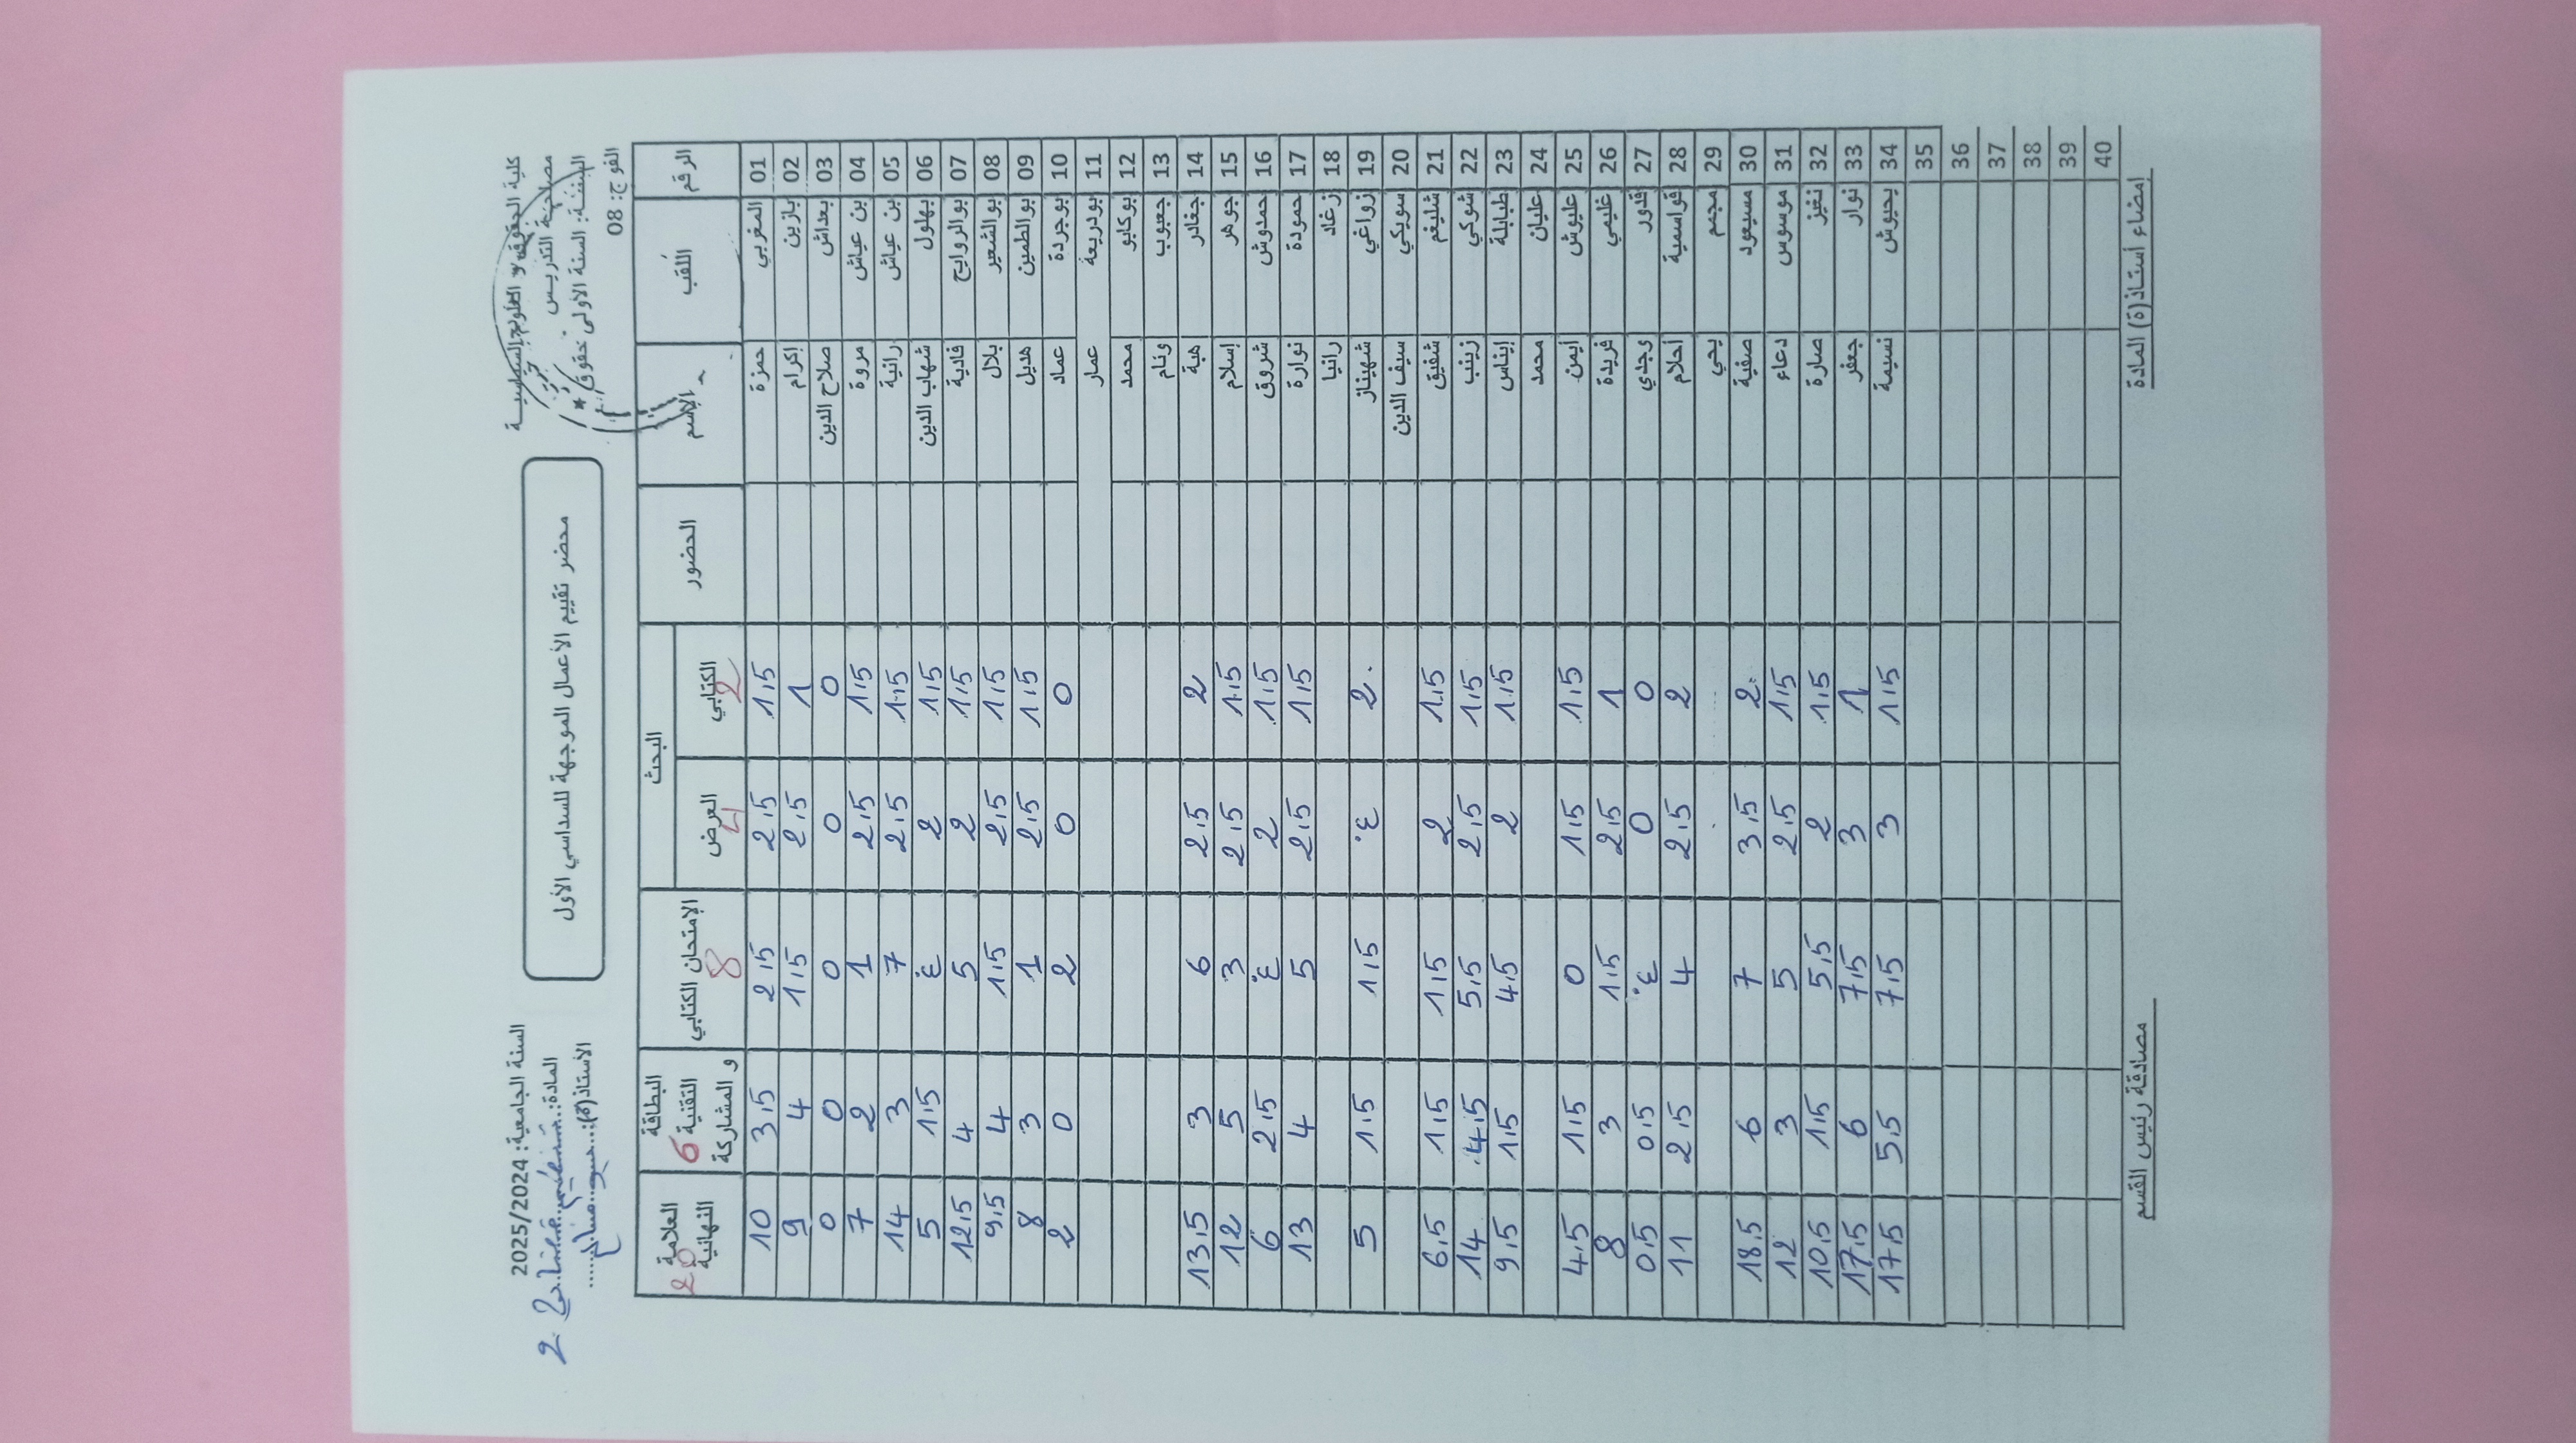 كلية الحقوق و العلوم السياسية
مصلحة التدريس
السنة: السنة الأولى حقوق
الفوج: 08
محضر تقييم الأعمال الموجهة للسداسي الأول
السنة الجامعية: 2025/2024
المادة: تنظيم قضائي 2
الأستاذ(ة):
الرقم اللقب الإسم الحضور البحث الكتابي 2 العرض 4 الإمتحان الكتابي 8 البطاقة التقنية و المشاركة 6 العلامة النهائية 20
01 المغربي حمزة 1.5 2.5 2.5 3.5 10
02 بازين إكرام 1 2.5 1.5 4 9
03 بعداش صلاح الدين 0 0 0 0 0
04 بن عياش مروة 1.5 2.5 1 2 7
05 بن عياش رانية 1.5 2.5 7 3 14
06 بهلول شهاب الدين 1.5 2 غ 1.5 5
07 بوالروايح فادية 1.5 2 5 4 12.5
08 بوالشعير بلال 1.5 2.5 1.5 4 9.5
09 بوالطمين هديل 1.5 2.5 1 3 8
10 بوجردة عماد 0 0 2 0 2
11 بودريعة عمار
12 بوكابو محمد
13 جعبوب ونام
14 جغادر هبة 2 2.5 6 3 13.5
15 جوهر إسلام 1.5 2.5 3 5 12
16 حمدوش شروق 1.5 2 غ 2.5 6
17 حمودة نوارة 1.5 2.5 5 4 13
18 زغاد رانيا
19 زواغي شهيناز 2 غ 1.5 1.5 5
20 سويكي سيف الدين
21 شليغم شفيق 1.5 2 1.5 1.5 6.5
22 شوكي زينب 1.5 2.5 5.5 4.5 14
23 طبابلة إيناس 1.5 2 4.5 1.5 9.5
24 عليان محمد
25 عليوش أيمن 1.5 1.5 0 1.5 4.5
26 غليمي فريدة 1 2.5 1.5 3 8
27 قدور وجدي 0 0 غ 0.5 0.5
28 قواسمية أحلام 2 2.5 4 2.5 11
29 مجمم يحي
30 مسيعود صفية 2 3.5 7 6 18.5
31 موسوس دعاء 1.5 2.5 5 3 12
32 نغيز صارة 1.5 2 5.5 1.5 10.5
33 نوار جعفر 1 3 7.5 6 17.5
34 يحيوش نسيمة 1.5 3 7.5 5.5 17.5
35
36
37
38
39
40
إمضاء أستاذ(ة) المادة
مصادقة رئيس القسم